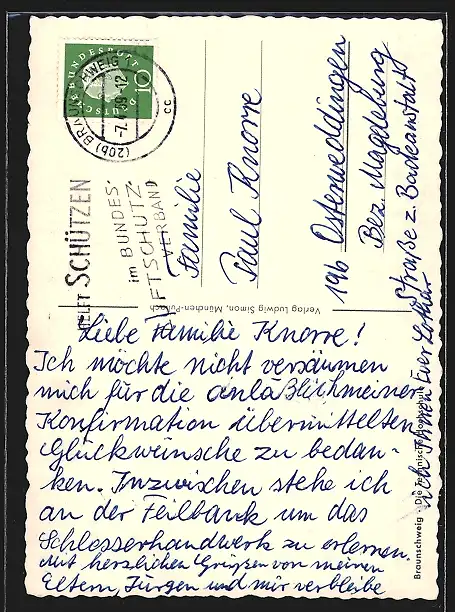 DEUTSCHE BUNDESPOST
10
(20b) BRAUNSCHWEIG 1
-7.
59.-12
cc
HELFT SCHÜTZEN
im BUNDES-
LUFTSCHUTZ-
VERBAND
Familie
Paul Knorre
19b Osterweddingen
Bez. Magdeburg
Straße z. Badeanstalt
Verlag Ludwig Simon, München-Pullach
Braunschweig - Die Technische Hochschule
Liebe Familie Knorre!
Ich möchte nicht versäumen
mich für die anläßlich meiner
Konfirmation übermittelten
Glückwünsche zu bedan-
ken. Inzwischen stehe ich
an der Feilbank um das
Schlosserhandwerk zu erlernen.
Mit herzlichen Grüßen von meinen
Eltern, Jürgen und mir verbleibe
ich Ihnen Euer Lothar